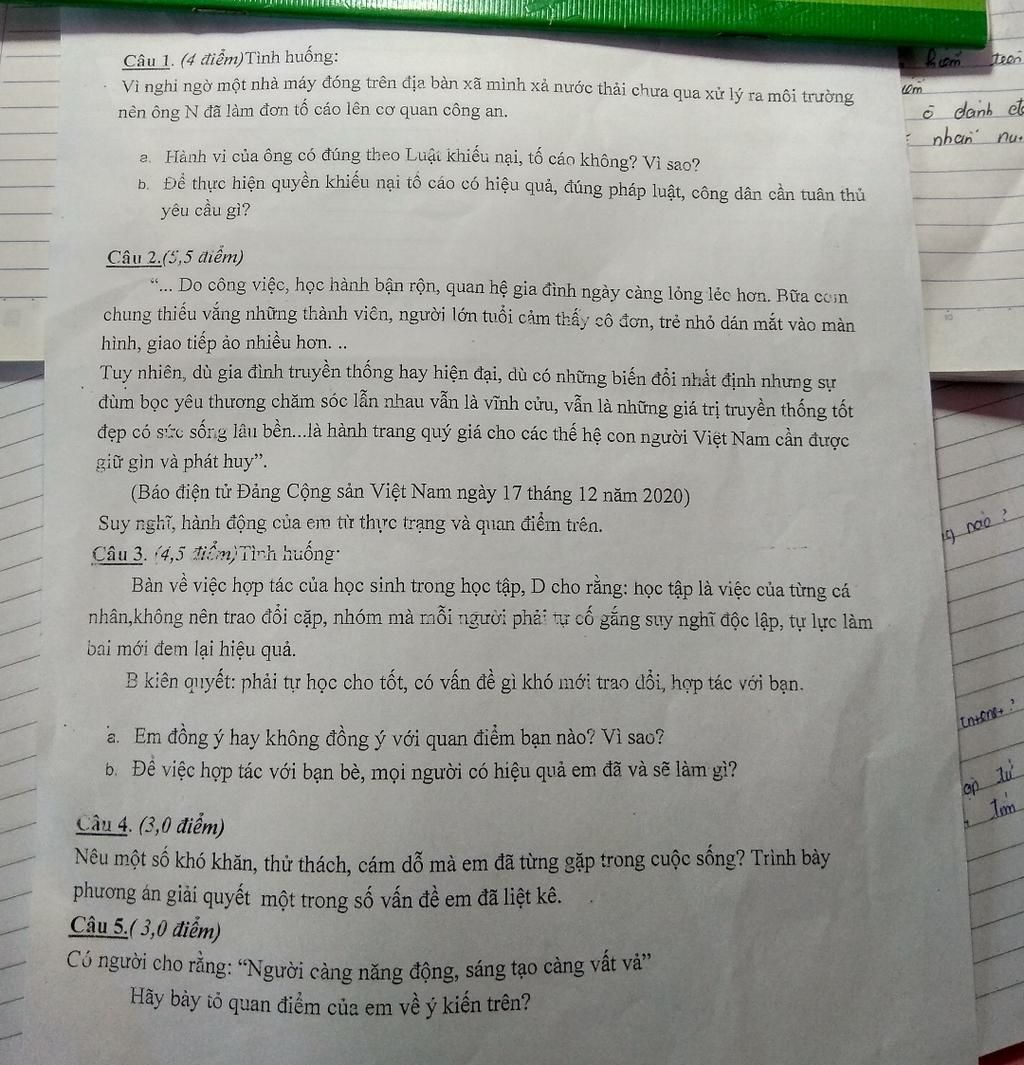 Câu 1. (4 điểm)Tình huống:
Vì nghi ngờ một nhà máy đóng trên địa bàn xã mình xả nước thải chưa qua xử lý ra môi trường
nên ông N đã làm đơn tố cáo lên cơ quan công an.
a. Hành vi của ông có đúng theo Luật khiếu nại, tố cáo không? Vì sao?
b. Để thực hiện quyền khiếu nại tố cáo có hiệu quả, đúng pháp luật, công dân cần tuân thủ
yêu cầu gì?
Câu 2.(5,5 điểm)
“... Do công việc, học hành bận rộn, quan hệ gia đình ngày càng lỏng lẻo hơn. Bữa cơm
chung thiếu vắng những thành viên, người lớn tuổi cảm thấy cô đơn, trẻ nhỏ dán mắt vào màn
hình, giao tiếp ảo nhiều hơn. ..
Tuy nhiên, dù gia đình truyền thống hay hiện đại, dù có những biến đổi nhất định nhưng sự
đùm bọc yêu thương chăm sóc lẫn nhau vẫn là vĩnh cửu, vẫn là những giá trị truyền thống tốt
đẹp có sức sống lâu bền...là hành trang quý giá cho các thế hệ con người Việt Nam cần được
giữ gìn và phát huy”.
(Báo điện tử Đảng Cộng sản Việt Nam ngày 17 tháng 12 năm 2020)
Suy nghĩ, hành động của em từ thực trạng và quan điểm trên.
Câu 3. (4,5 điểm)Tình huống:
Bàn về việc hợp tác của học sinh trong học tập, D cho rằng: học tập là việc của từng cá
nhân,không nên trao đổi cặp, nhóm mà mỗi người phải tự cố gắng suy nghĩ độc lập, tự lực làm
bai mới đem lại hiệu quả.
B kiên quyết: phải tự học cho tốt, có vấn đề gì khó mới trao đổi, hợp tác với bạn.
a. Em đồng ý hay không đồng ý với quan điểm bạn nào? Vì sao?
b. Để việc hợp tác với bạn bè, mọi người có hiệu quả em đã và sẽ làm gì?
Câu 4. (3,0 điểm)
Nêu một số khó khăn, thử thách, cám dỗ mà em đã từng gặp trong cuộc sống? Trình bày
phương án giải quyết một trong số vấn đề em đã liệt kê.
Câu 5.( 3,0 điểm)
Có người cho rằng: “Người càng năng động, sáng tạo càng vất vả”
Hãy bày tỏ quan điểm của em về ý kiến trên?
danh
nhan
nào ?